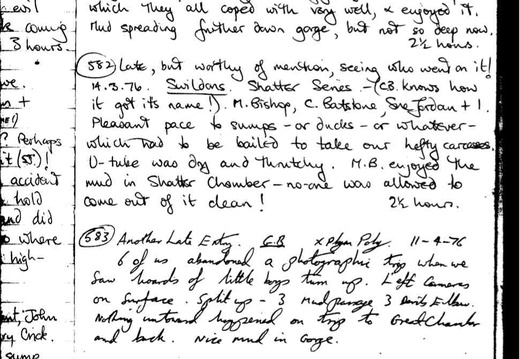 which they all coped with very well, & enjoyed it.
Mud spreading further down gorge, but not so deep now.
2½ hours.
582 Late, but worthy of mention, seeing who went on it!
14.3.76. Swildons. Shatter Series - (C.B. knows how
it got its name!). M. Bishop, C. Batstone, Sue Jordan + 1.
Pleasant pace to sumps - or ducks - or whatever -
which had to be bailed to take our hefty carcases.
U-tube was dry and thrutchy. M.B. enjoyed the
mud in Shatter Chamber - no-one was allowed to
come out of it clean! 2½ hours.
583 Another Late Entry. G.B 11-4-76
6 of us abandoned a photographic trip when we
saw hoards of little boys turn up. Left Cameras
on surface. Split up - 3 Mud passage 3 Devils Elbow.
Nothing untoward happened on trip to Great Chamber
and back. Nice mud in Gorge.
evil
coming
3 hours.
we.
+
? Perhaps
it (SJ)!
accident
hold
and did
where
high-
, John
Crick.
sump